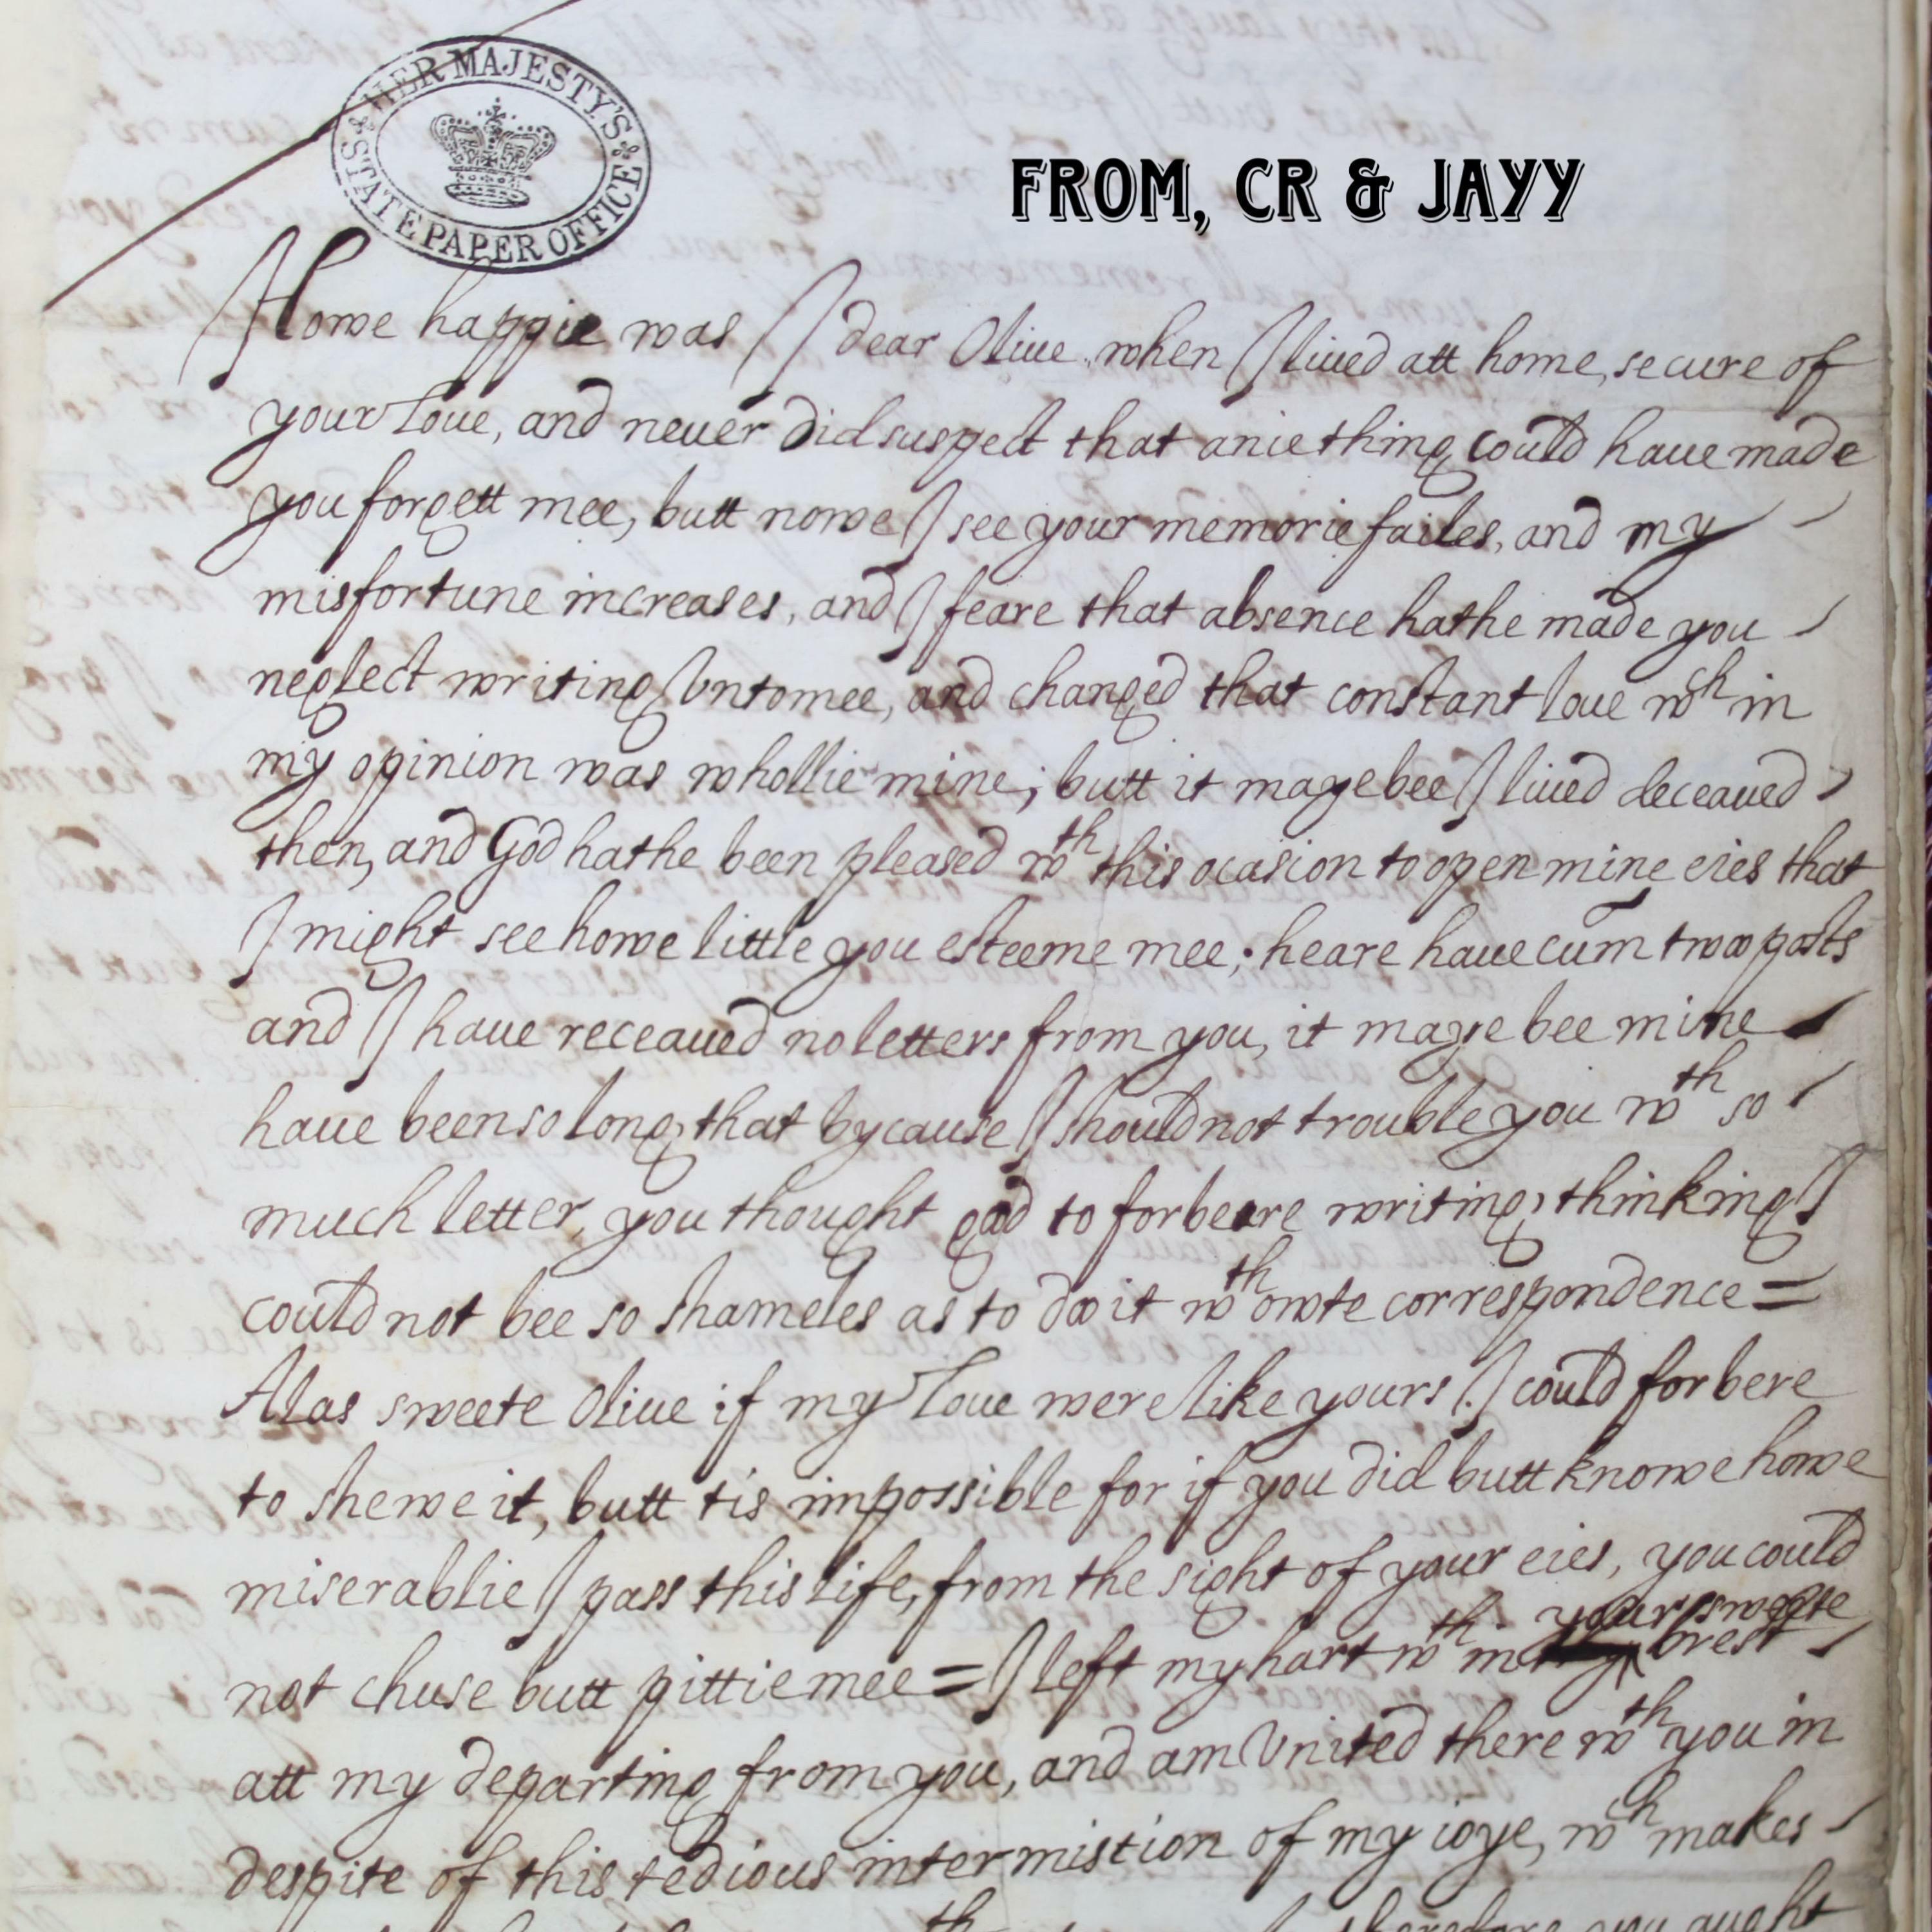 HER MAJESTY'S
STATE PAPER OFFICE
FROM, CR & JAYY
Howe happie was I dear Oliue when I liued att home, secure of
your loue, and neuer did suspect that aniething could haue made
you forgett mee, butt nowe I see your memorie failes, and my
misfortune increases, and I feare that absence hathe made you
neglect writing Vnto mee, and changed that constant loue wch in
my opinion was whollie mine; butt it maye bee I liued deceaued
then, and God hathe been pleased wth this ocasion to open mine eies that
I might see howe little you esteeme mee; heare haue cum twoo posts
and I haue receaued no letters from you, it maye bee mine
haue been so long, that bycause I should not trouble you wth so
much letter, you thought gad to forbeare writing, thinking I
could not bee so shameles as to doo it wthowte correspondence =
Alas sweete Oliue if my loue were like yours I could forbere
to shewe it, butt tis impossible for if you did butt knowe howe
miserablie I pass this life, from the sight of your eies, you could
your sweete
not chuse butt pittie mee = I left my hart wth in brest
att my departing from you, and am Vnited there wth you in
despite of this tedious intermistion of my ioye, wch makes
th therefore you aught